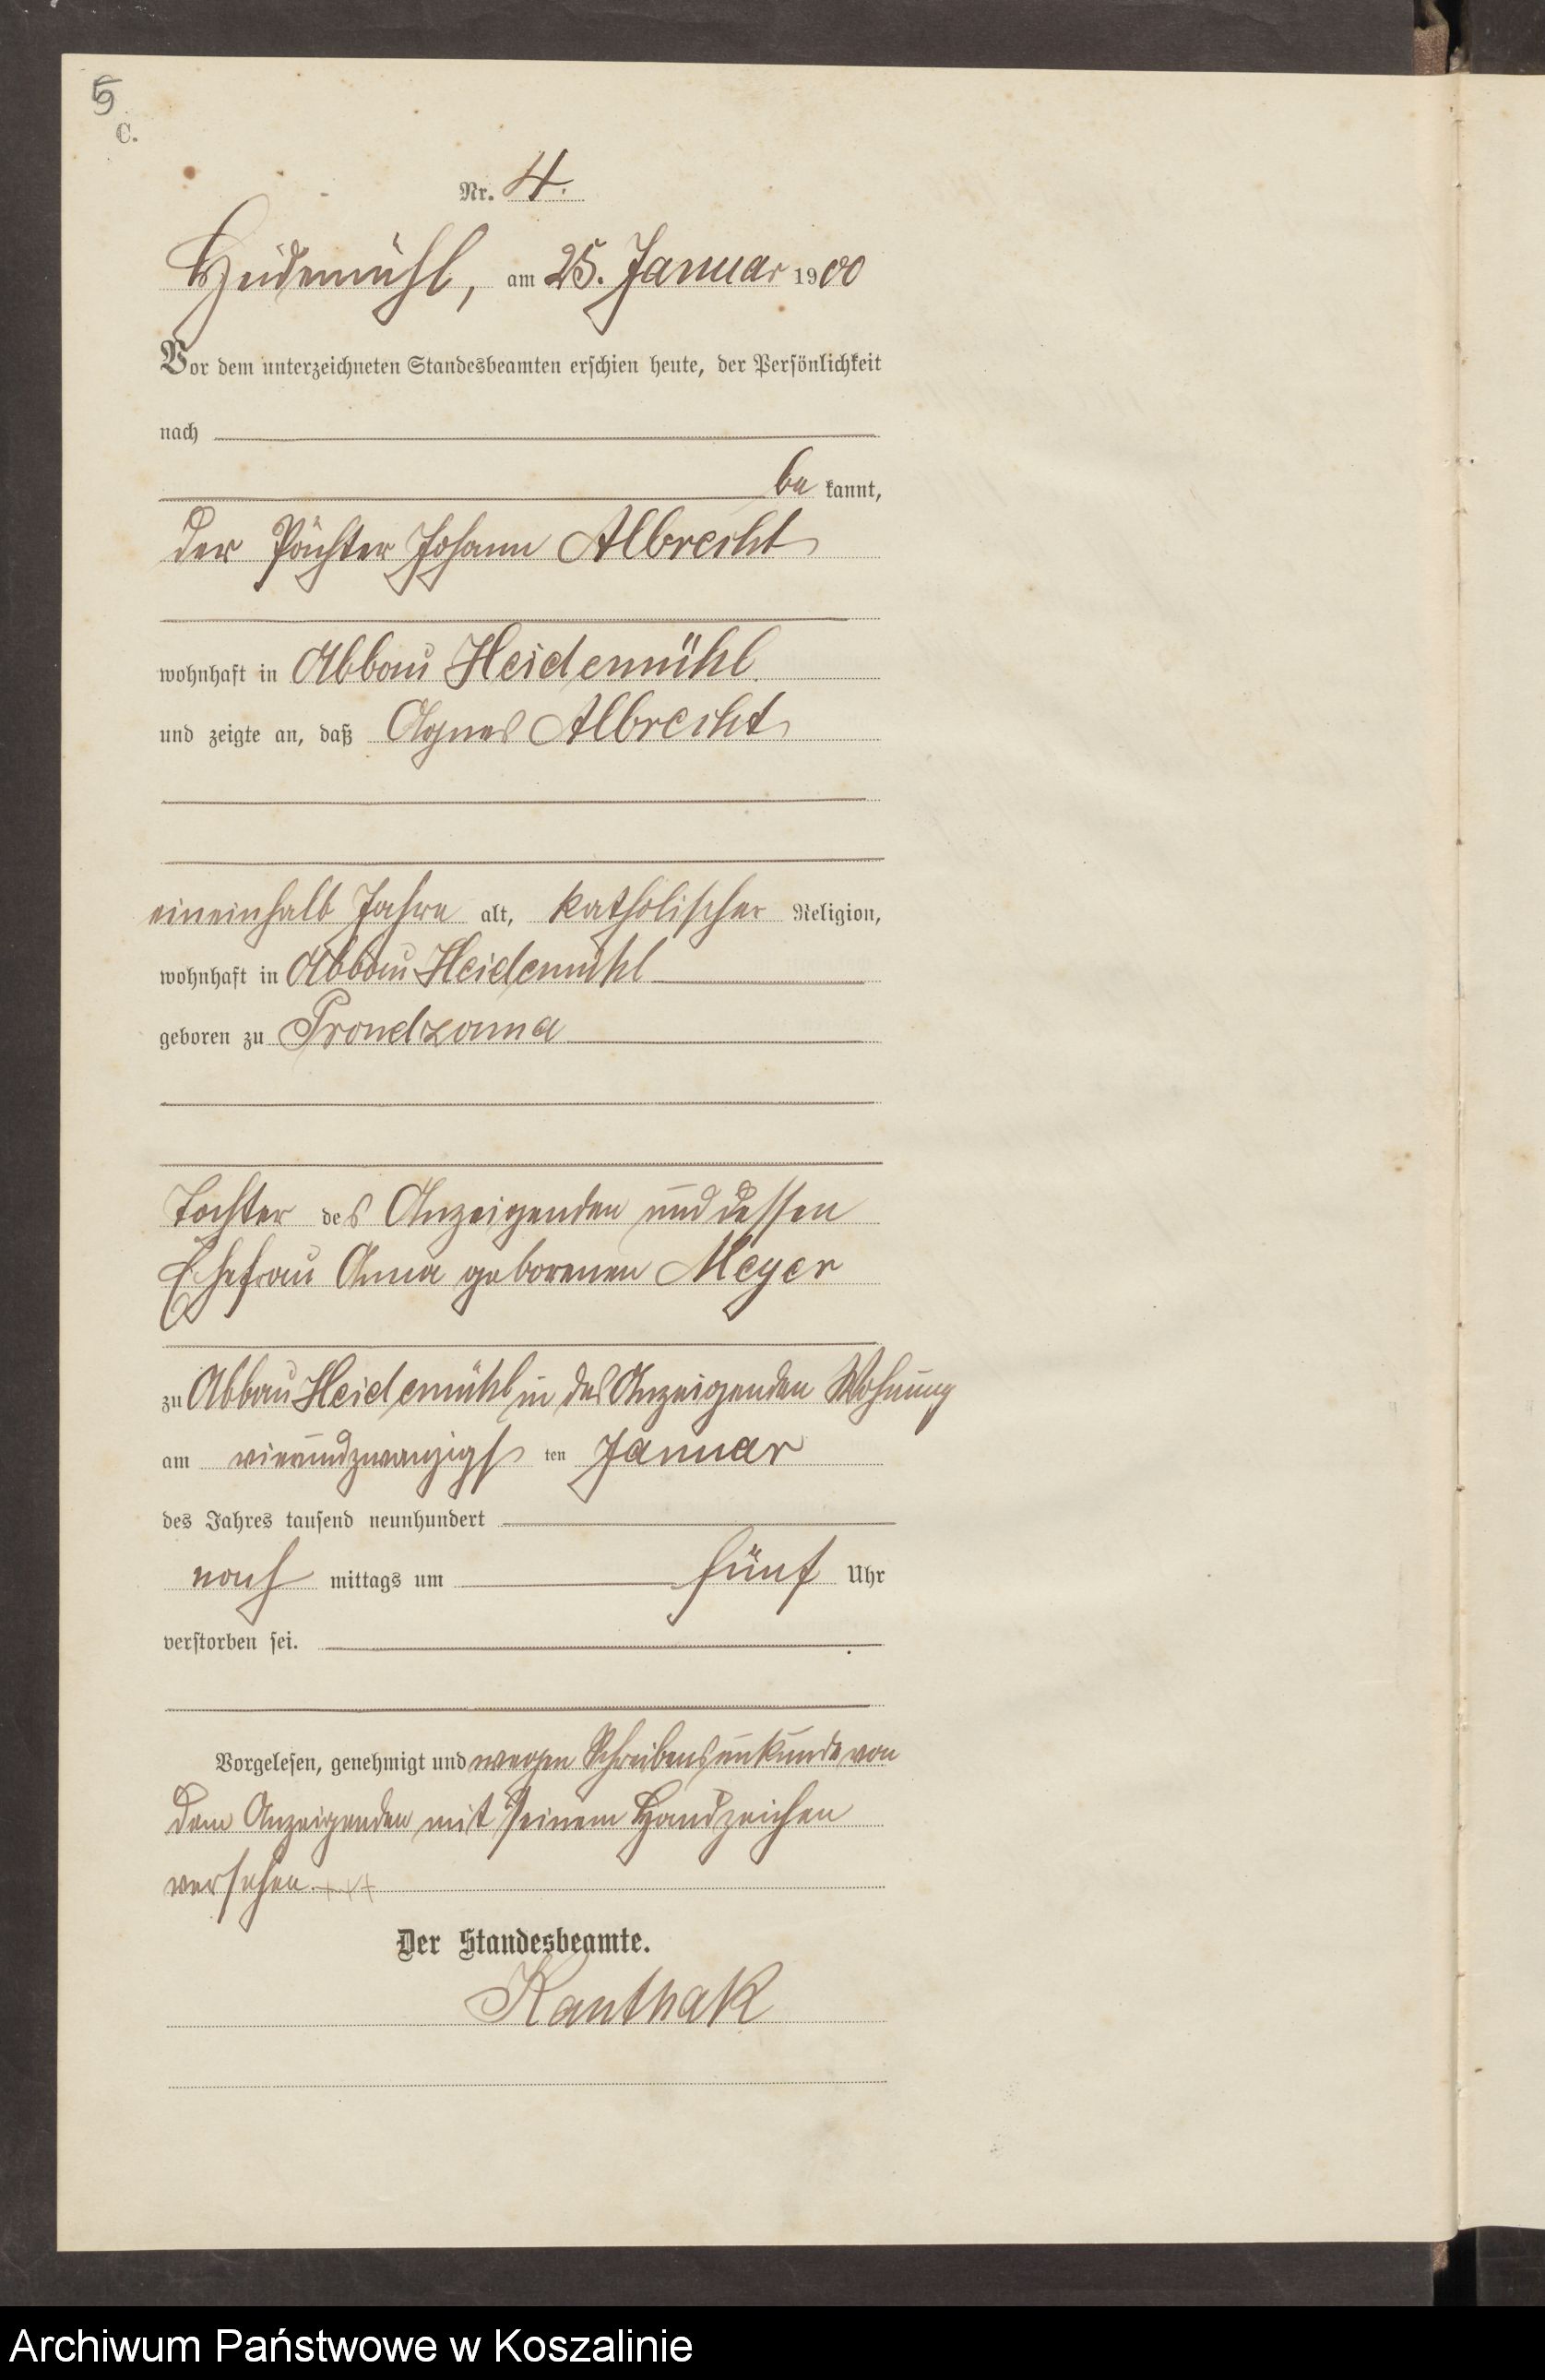 5
C.
Nr. 4.
Heidemühl, am 25. Januar 1900
Vor dem unterzeichneten Standesbeamten erschien heute, der Persönlichkeit
nach
be kannt,
der Pächter Johann Albrecht
wohnhaft in Abbau Heidemühl.
und zeigte an, daß Agnes Albrecht
eineinhalb Jahre alt, katholischer Religion,
wohnhaft in Abbau Heidemühl
geboren zu Prondzonna
Tochter des Anzeigenden und dessen
Ehefrau Anna geborenen Meyer
zu Abbau Heidemühl in des Anzeigenden Wohnung
am vierundzwanzigsten Januar
des Jahres tausend neunhundert
nach mittags um fünf Uhr
verstorben sei.
Vorgelesen, genehmigt und wegen Schreibensunkunde von
dem Anzeigenden mit seinem Handzeichen
versehen. +++
Der Standesbeamte.
Kanthak
Archiwum Państwowe w Koszalinie